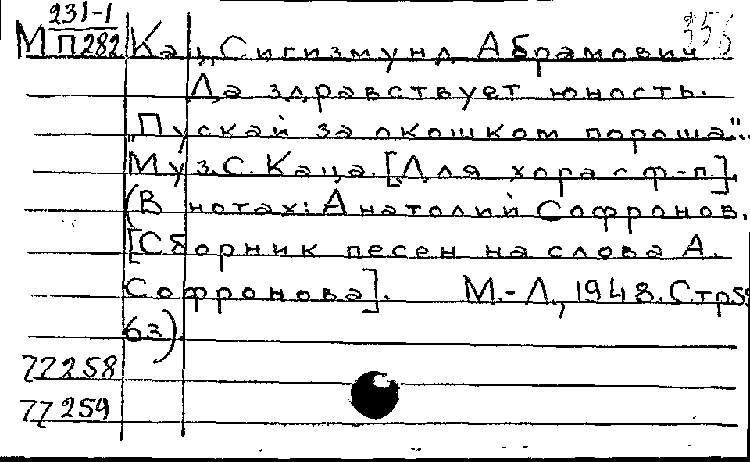 231-1
М П282 Кац, Сигизмунд Абрамович
Да здравствует юность.
„Пускай за окошком пороша"..
Муз. С. Каца. [Для хора с ф-п].
(В нотах: Анатолий Софронов.
[Сборник песен на слова А.
Софронова]. М.-Л., 1948. Стр 59
63).
77258
77259